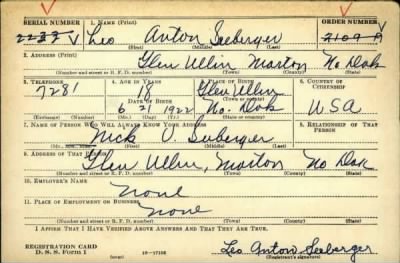 SERIAL NUMBER 1. NAME (Print) ORDER NUMBER
Leo Anton Seeberger
(First) (Middle) (Last)
2. ADDRESS (Print)
Glen Ullin Morton No Dak
(Number and street or R. F. D. number) (Town) (County) (State)
3. TELEPHONE 4. AGE IN YEARS 5. PLACE OF BIRTH 6. COUNTRY OF CITIZENSHIP
7281 18 Glen Ullin
DATE OF BIRTH (Town or county)
6 21 1922 No. Dak USA
(Exchange) (Number) (Mo.) (Day) (Yr.) (State or country)
7. NAME OF PERSON WHO WILL ALWAYS KNOW YOUR ADDRESS 8. RELATIONSHIP OF THAT PERSON
Nick Seeberger
9. ADDRESS OF THAT PERSON
Glen Ullin, Morton No Dak
(Number and street or R. F. D. number) (Town) (County) (State)
10. EMPLOYER'S NAME
None
11. PLACE OF EMPLOYMENT OR BUSINESS
None
(Number and street or R. F. D. number) (Town) (County) (State)
I AFFIRM THAT I HAVE VERIFIED ABOVE ANSWERS AND THAT THEY ARE TRUE.
REGISTRATION CARD
D. S. S. Form 1 Leo Anton Seeberger
(Registrant's signature)